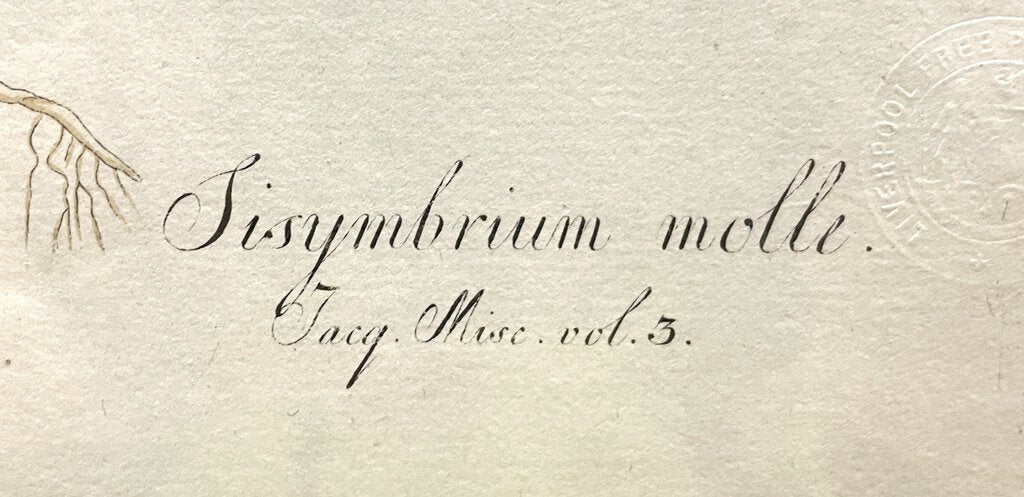 LIVERPOOL FREE
Sisymbrium molle.
Jacq. Misc. vol. 3.